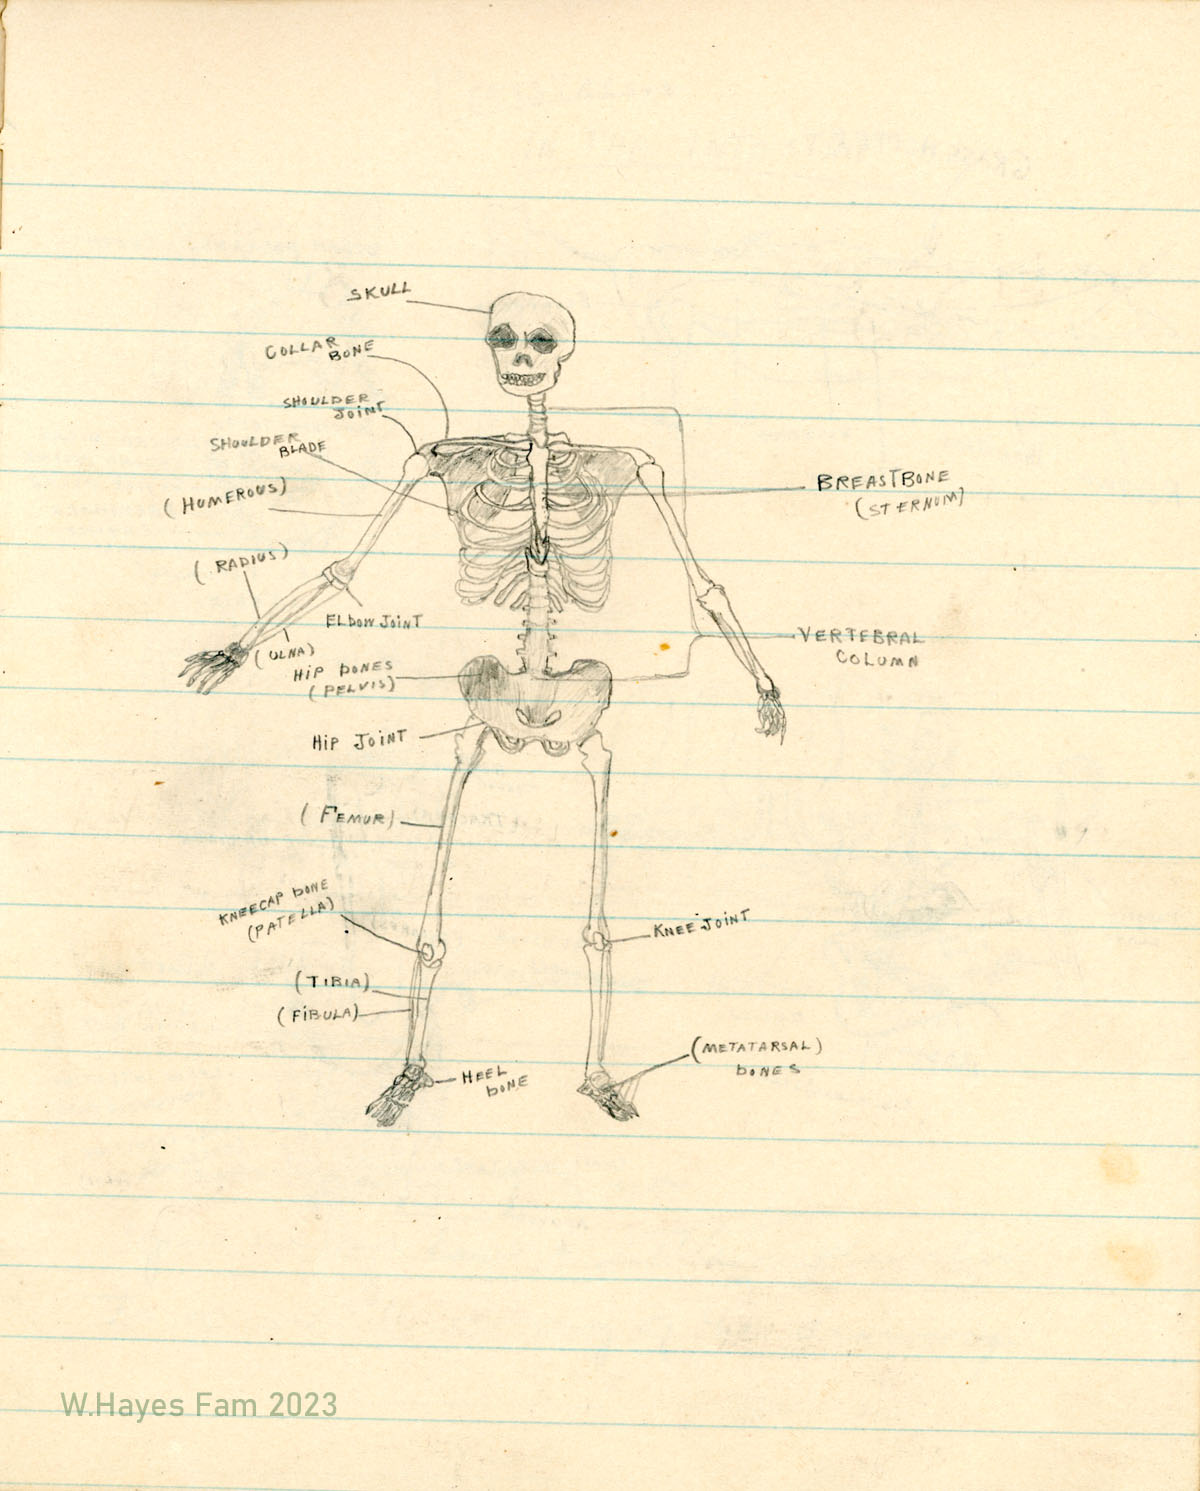 SKULL
COLLAR
BONE
SHOULDER
JOINT
SHOULDER
BLADE
(HUMEROUS)
BREASTBONE
(STERNUM)
(RADIUS)
ELBOW JOINT
(ULNA)
VERTEBRAL
COLUMN
HIP BONES
(PELVIS)
HIP JOINT
(FEMUR)
KNEECAP BONE
(PATELLA)
KNEE JOINT
(TIBIA)
(FIBULA)
(METATARSAL)
BONES
HEEL
BONE
W.Hayes Fam 2023